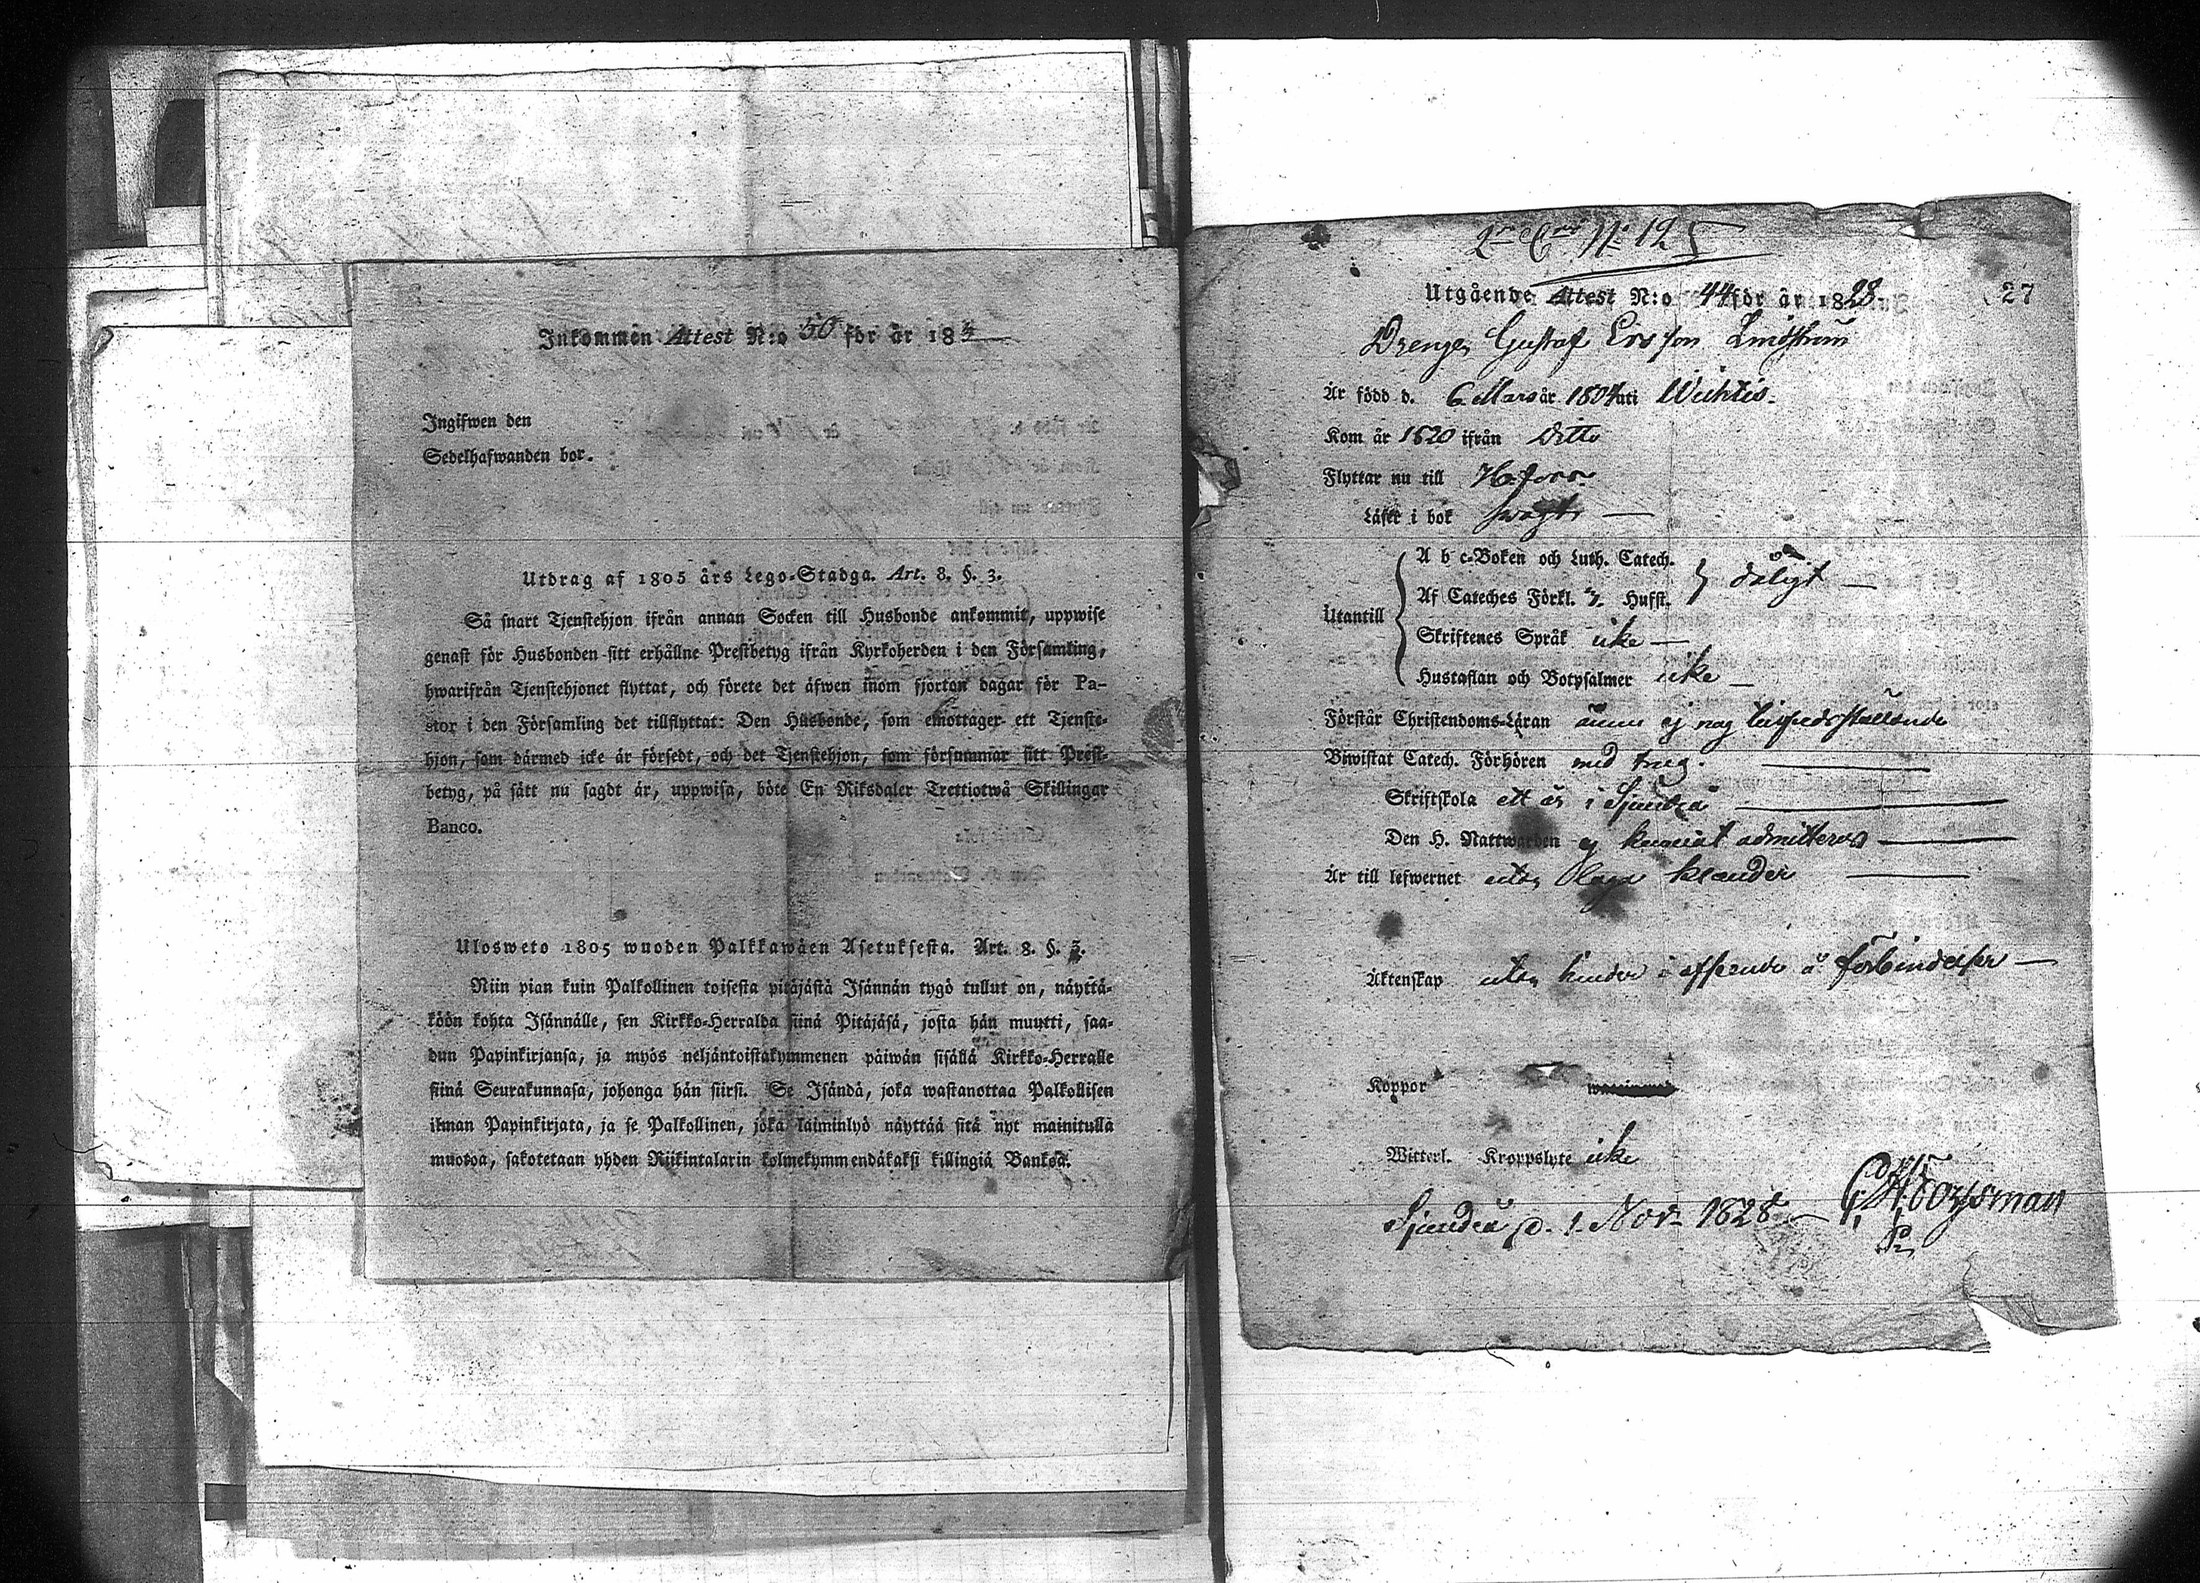 Inkommen Attest N:o 50 för år 18
Ingifwen den
Sedelhafwanden bor.
Utdrag af 1805 års Lego-Stadga. Art. 8. §. 3.
Så snart Tjenstehjon ifrån annan Socken till Husbonde ankommit, uppwise
genast för Husbonden sitt erhållne Prestbetyg ifrån Kyrkoherden i den Församling,
hwarifrån Tjenstehjonet flyttat, och förete det äfwen inom fjorton dagar för Pa-
stor i den Församling det tillflyttat: Den Husbonde, som emottager ett Tjenste-
hjon, som därmed icke är försedt, och det Tjenstehjon, som försummar sitt Prest-
betyg, på sätt nu sagdt är, uppwisa, böte En Riksdaler Trettiotwå Skillingar
Banco.
Ulosweto 1805 wuoden Palkkawäen Asetuksesta. Art. 8. §. 3.
Niin pian kuin Palkollinen toisesta pitäjästä Isännän tygö tullut on, näyttä-
köön kohta Isännälle, sen Kirkko-Herralda siinä Pitäjäsä, josta hän muutti, saa-
dun Papinkirjansa, ja myös neljäntoistakymmenen päiwän sisällä Kirkko-Herralle
siinä Seurakunnasa, johonga hän siirsi. Se Isändä, joka wastanottaa Palkollisen
ilman Papinkirjata, ja se Palkollinen, joka laiminlyö näyttää sitä nyt mainitulla
muotoa, sakotetaan yhden Riikintalarin kolmekymmendäkaksi killingiä Bankoa.
N:o 125
Utgående Attest N:o 44 för år 1828. 27
Drengen Gustaf Ersson Lindström
Är född d. 6 Mars år 1804 uti Wichtis.
Kom år 1820 ifrån Ditto
Flyttar nu till H:fors
Läser i bok swagt
Utantill
A b c-Boken och Luth. Catech.
Af Cateches Förkl. Husst.
dåligt
Skriftenes Språk icke
Hustaflan och Botpsalmer icke
Förstår Christendoms-Läran ännu ej nog tillfredsställande
Biwistat Catech. Förhören med trög.
Skriftskola ett år i Sjundeå
Den H. Nattwarden ej kunnat admitteras
Är till lefwernet utan klander
Äktenskap utan hinder i afseende å förbindelser
Koppor
Witterl. Kroppslyte icke
Sjundeå d. 1 Nov. 1828